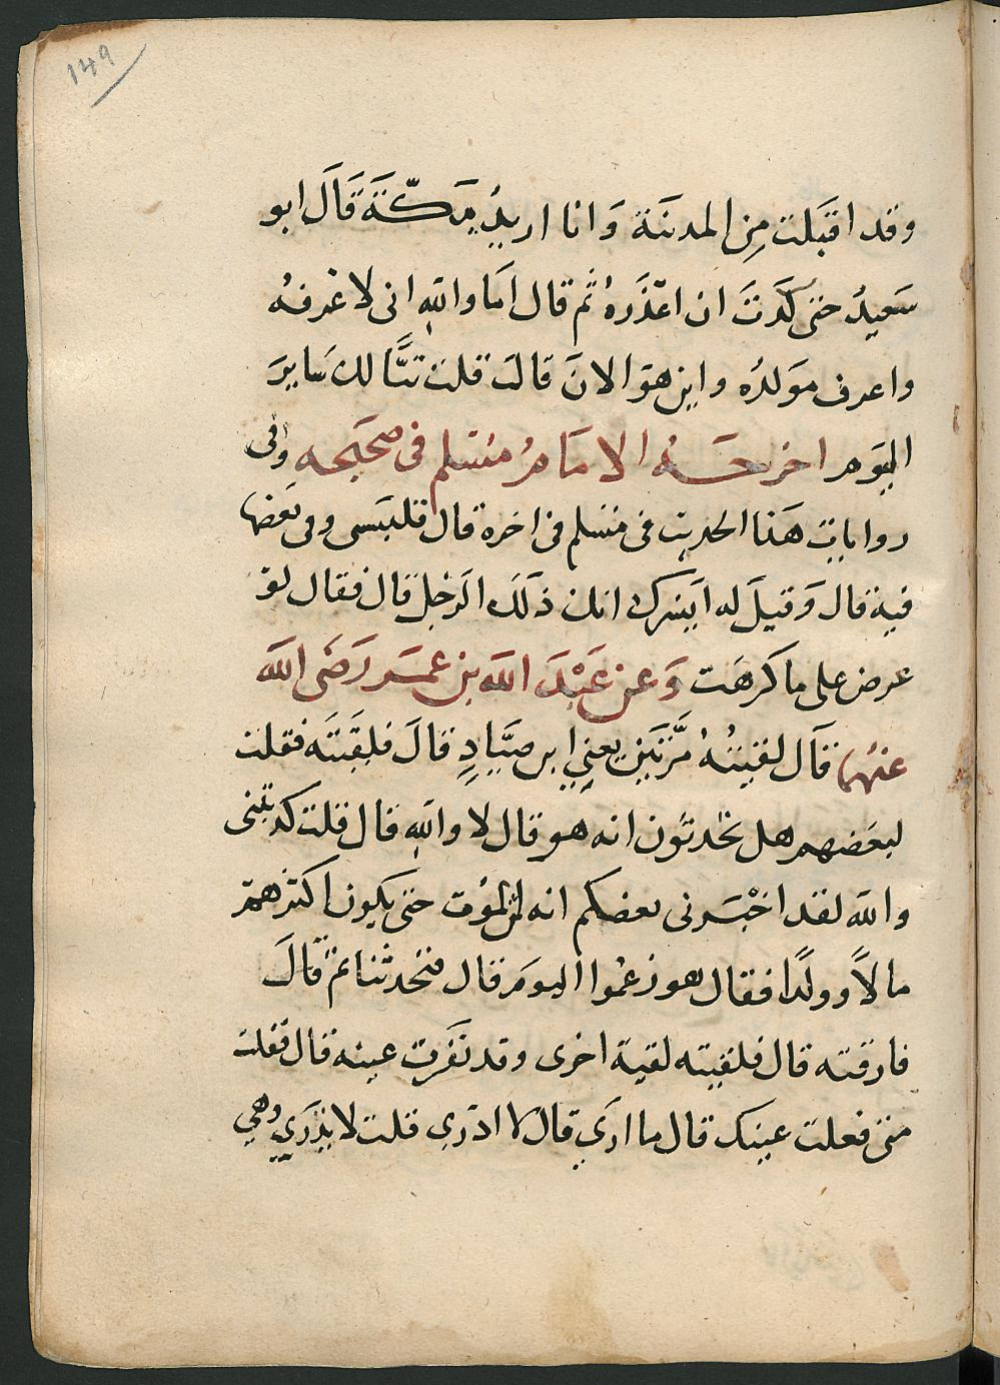 149
وقد اقبَلت مِن المدنَة وَانا اريدُ مَكّةَ قَالَ ابو
سَعيدُ حتى كدَتَ ان اعذَرهُ ثم قال اَما واللهِ انى لاعرفهُ
واعرف موَلدُه واين هوَ الانَ قالَت قلت تبًّا لك سَايرَ
اليَومِ اخرجَهُ الامَامُ مُسْلم فى صحَيحه وفى
روايات هَذا الحديث فى مسْلم فى اخره قال فلبسَى وفى بَعضها
فيه قال وَقيلَ له اَيسَرك انك ذَلكَ الرَجل قال فقال لوْ
عرض على ما كرهَت وَعن عَبْدَ اللهَ بن عمَر رَضَى اللهَ
عنهُما قَال لقيتُهُ مَّرتَين يعنِي ابن صيَّادٍ قالَ فلقَيتَه فقلت
لبعَضهم هل تحَدثوُن انه هو قال لا واللهِ قال قلت كدبَتنى
والله لقد اخبْرَنى بعضكم انه لن يمُوت حتى يكون اكثرهمْ
مالاً وولدًا فقال هو زعمُوا اليومَ قال فتحدثنا ثم قالَ
فارقته قال فلقيته لقية اخرى وقد نَفَرت عينه قال فقلت
متى فعلت عينك قال ما ارَي قال لا ادرِى قلت لا يدرَي وهي